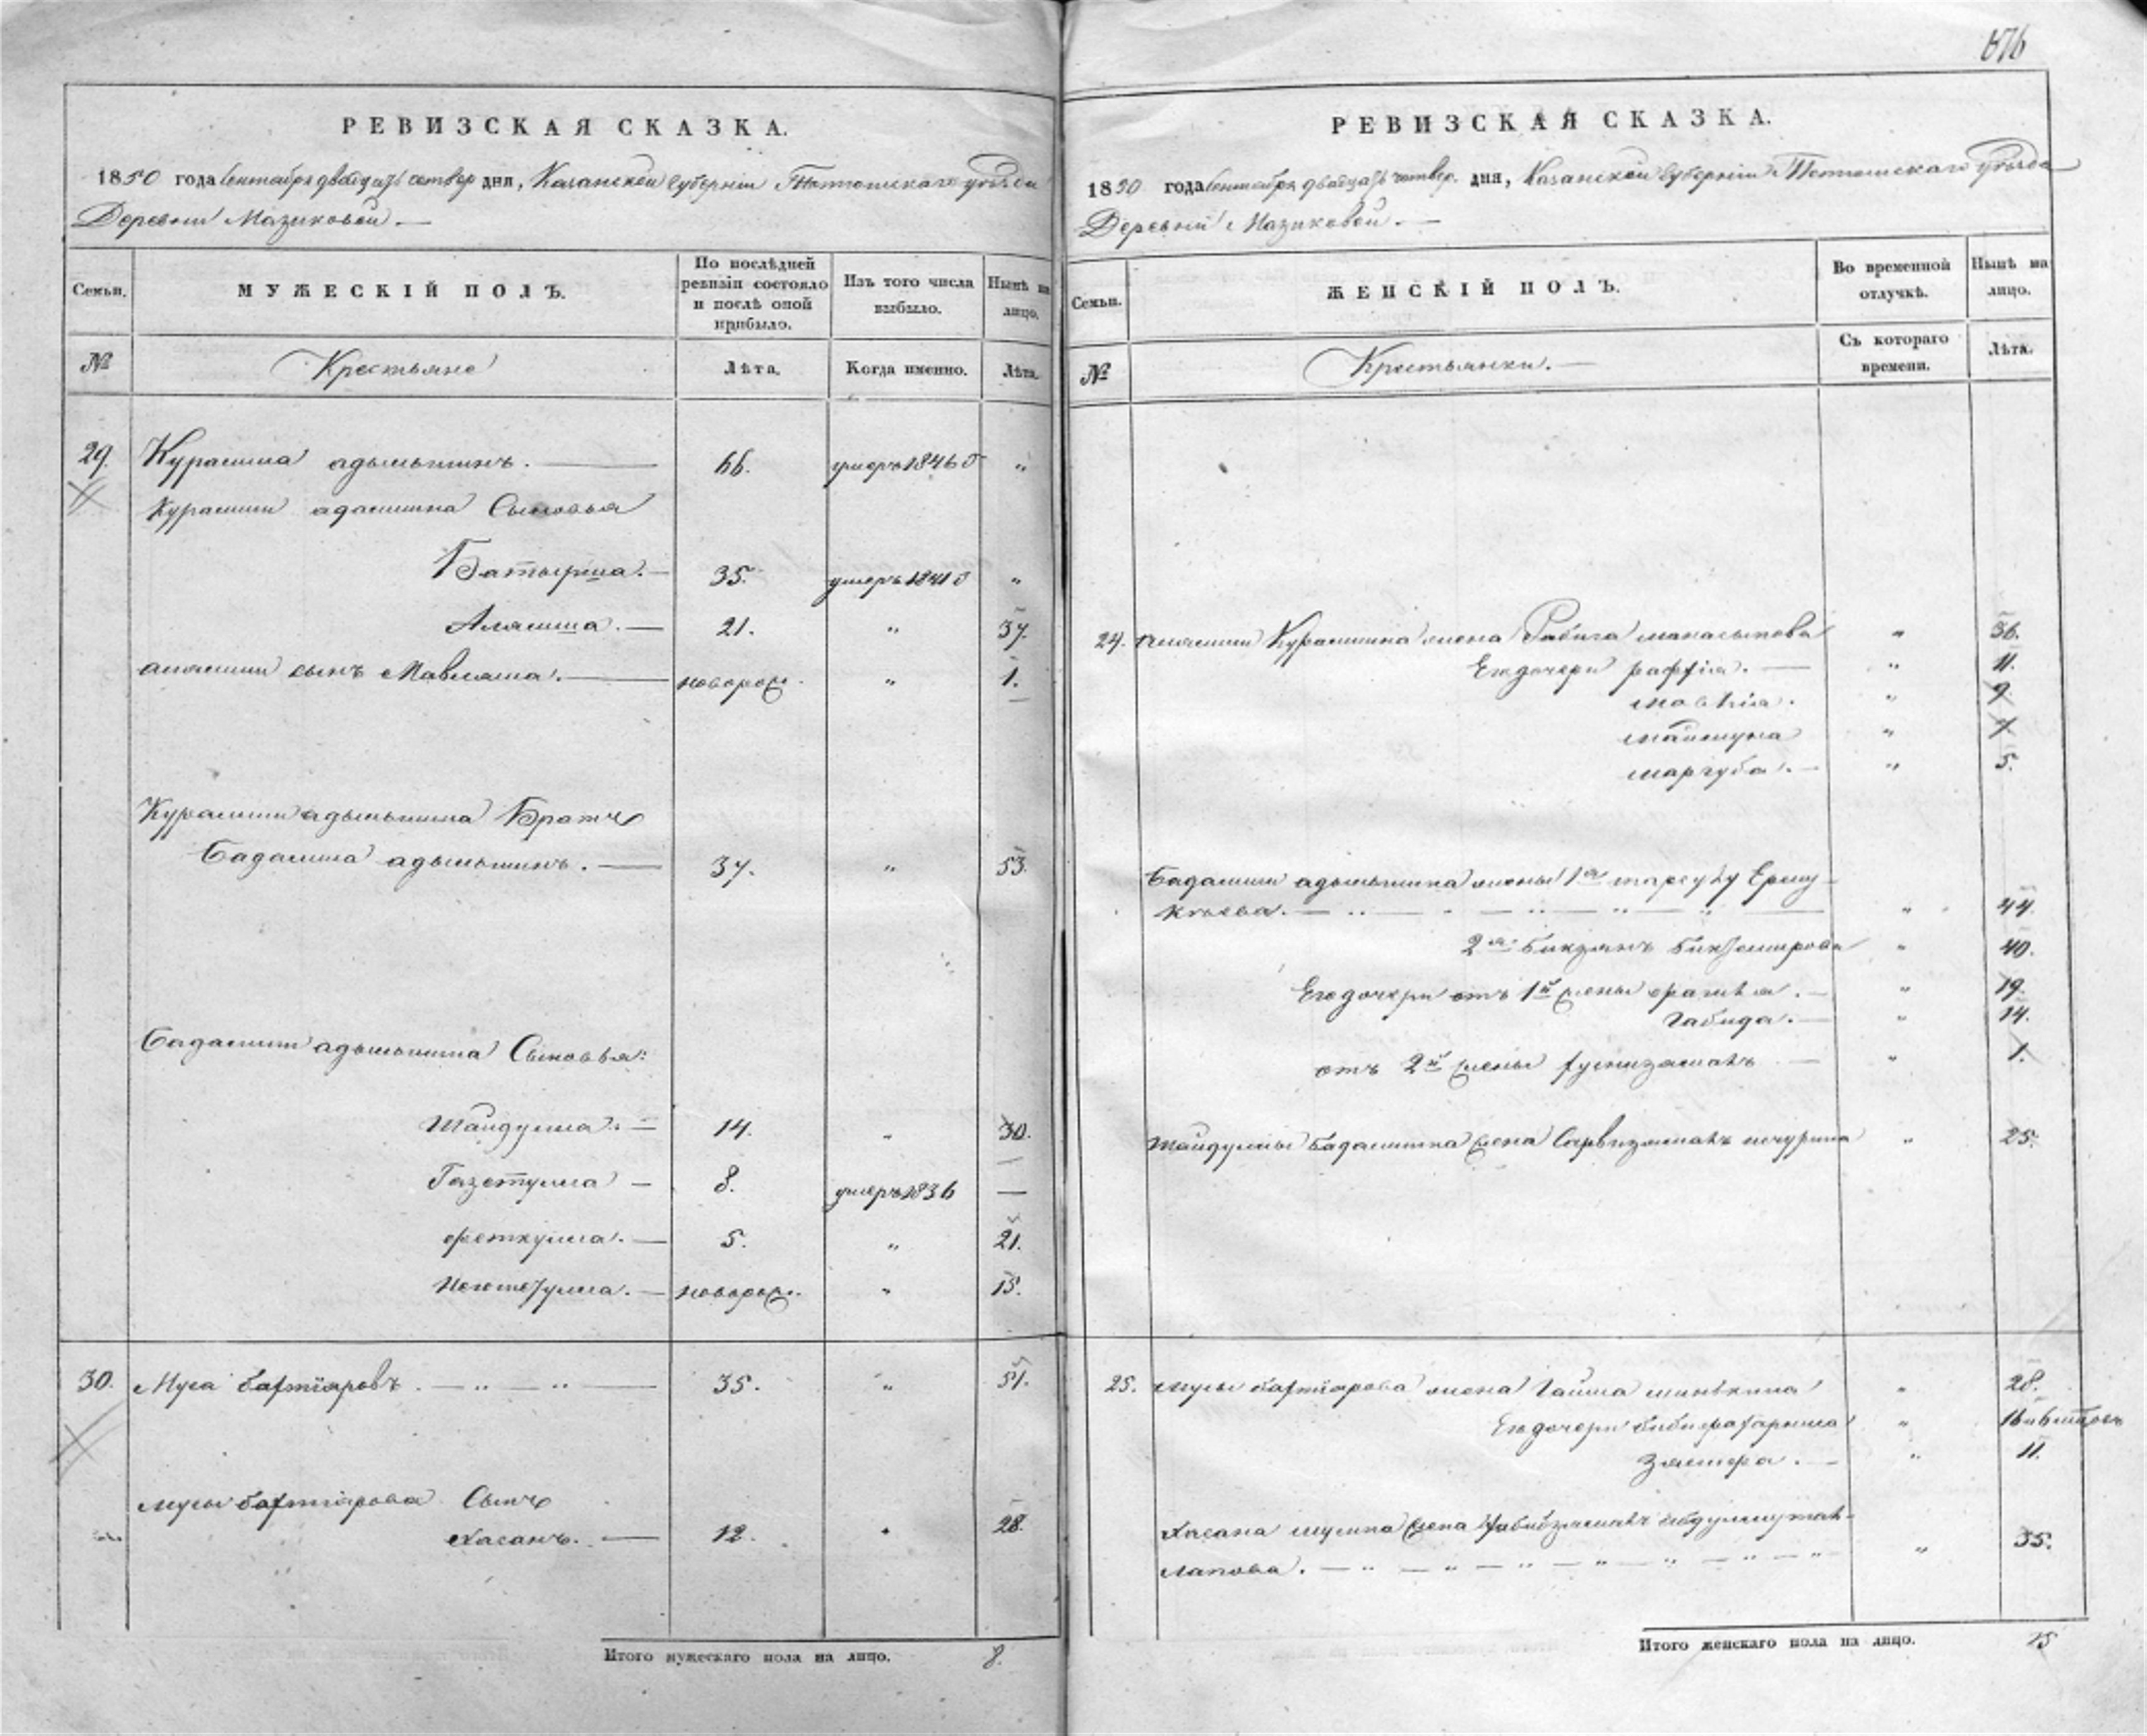 876
РЕВИЗСКАЯ СКАЗКА.
1850 года Сентября двадцать четвер дня, Казанской Губерніи Тетюшскаго уѣзда
Деревни Мазиковой. —
Семьи. МУЖЕСКІЙ ПОЛЪ. По послѣдней ревизіи состояло и послѣ оной прибыло. Изъ того числа выбыло. Нынѣ на лицо.
№ Крестьяне Лѣта. Когда именно. Лѣта.
29. Курамша адельшинъ. — 66. умеръ 1846 „
Курамши адамшина Сыновья
Батырша. — 35. умеръ 1841 „
Алямша. — 21. „ 37.
алямши сынъ Мавлюша. — новорож. „ 1.
Курамши адельшина Братъ
Бадамша адельшинъ. — 37. „ 53.
Бадамши адельшина Сыновья:
Шайдулла. — 14. „ 30.
Газетулла — 8. умеръ 1836 —
феткулла. — 5. „ 21.
— новорож. „ 15.
30. Муса бахтіяровъ. — „ — „ — 35. „ 51.
мусы бахтіярова Сынъ
Хасанъ. — 12. „ 28.
Итого мужескаго пола на лицо. 8.
РЕВИЗСКАЯ СКАЗКА.
1850 года Сентября двадцать четвер. дня, Казанской Губерніи Тетюшскаго уѣзда
Деревни Мазиковой. —
Семьи. ЖЕНСКІЙ ПОЛЪ. Во временной отлучкѣ. Нынѣ на лицо.
№ Крестьянки. — Съ котораго времени. Лѣта.
24. алямши Курамшина жена Рабига манасыпова „ 36.
Его дочери раффіа. — „ 11.
мавхіа. „ 9.
маймуна „ 7.
маргуба. — „ 5.
Бадамши адельшина жены 1я
— „ — „ — „ — „ — „ 44.
2я Бикзянъ Биктемирова „ 40.
Его дочери отъ 1й жены — „ 19.
Габида. — „ 14.
отъ 2й жены — „ 1.
шайдуллы бадамшина жена „ 25.
25. мусы бахтіярова жена Гайша „ 28.
Его дочери „ 16
— „ 11.
Хасана мусина жена
— „ — „ — „ — „ — „ — „ 35.
Итого женскаго пола на лицо. 15